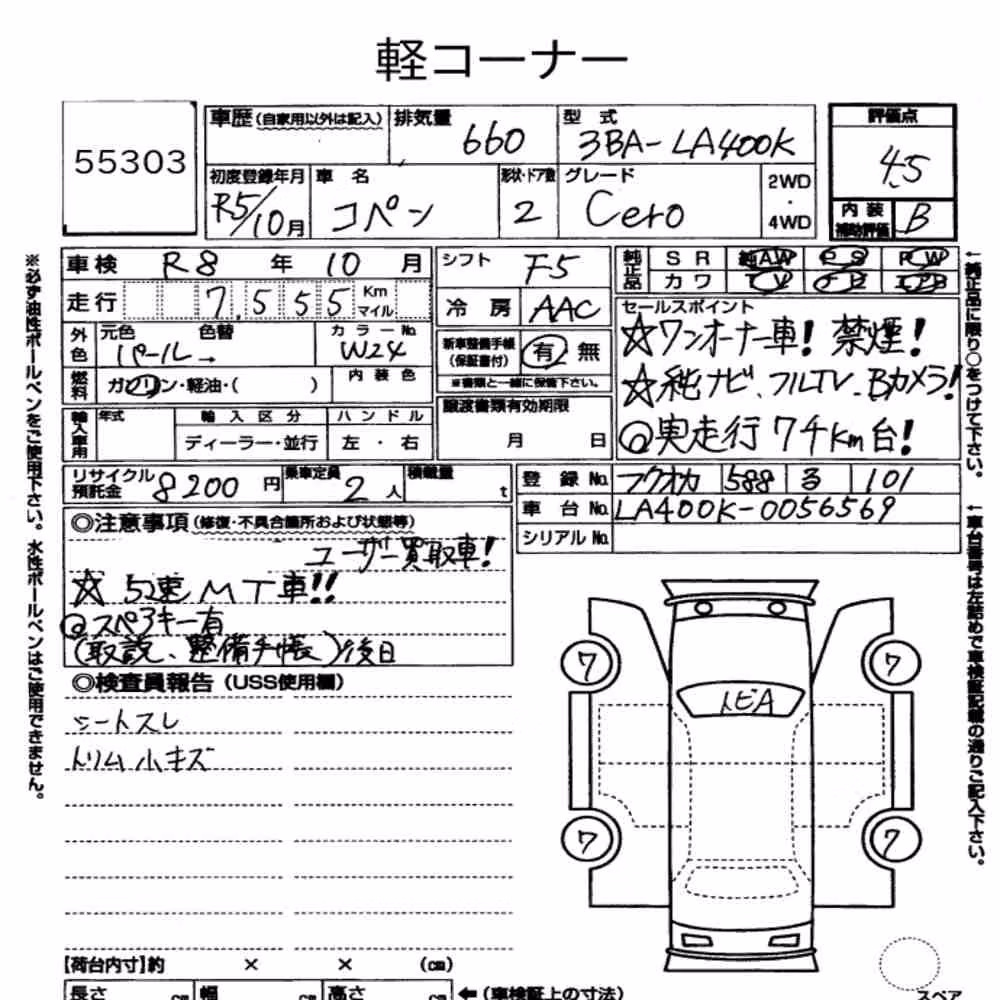 軽コーナー
55303
車歴(自家用以外は記入) 排気量 660 型式 3BA-LA400K
評価点 4.5
初度登録年月 R5/10月 車名 コペン 形状・ドア数 2 グレード Cero 2WD・4WD
内装補助評価 B
車検 R8年10月 シフト F5
純正品 SR 純AW PS PW
カワ TV ナビ エアB
走行 7,555 Km マイル 冷房 AAC
外色 元色 パール→ 色替 カラーNo. W24
新車整備手帳(保証書付) 有 無
※書類と一緒に保管下さい。
燃料 ガソリン・軽油・( ) 内装色
セールスポイント
☆ワンオーナー車! 禁煙!
☆純ナビ、フルTV、Bカメラ!
◎実走行7千Km台!
譲渡書類有効期限 月 日
輸入車用 年式 輸入区分 ハンドル
ディーラー・並行 左・右
リサイクル預託金 8200円 乗車定員 2人 積載量 t
登録No. フクオカ 588 る 101
車台No. LA400K-0056569
シリアルNo.
◎注意事項(修復・不具合箇所および状態等)
ユーザー買取車!
☆5速MT車!!
◎スペアキー有
(取説、整備手帳)後日
◎検査員報告(USS使用欄)
シートスレ
トリム小キズ
トビA
7 7
7 7
【荷台内寸】約 × × (cm)
長さ cm 幅 cm 高さ cm ←(車検証上の寸法)
スペア
※必ず油性ボールペンをご使用下さい。水性ボールペンはご使用できません。
←純正品に限り○をつけて下さい。
←車台番号は左詰めで車検証記載の通りご記入下さい。